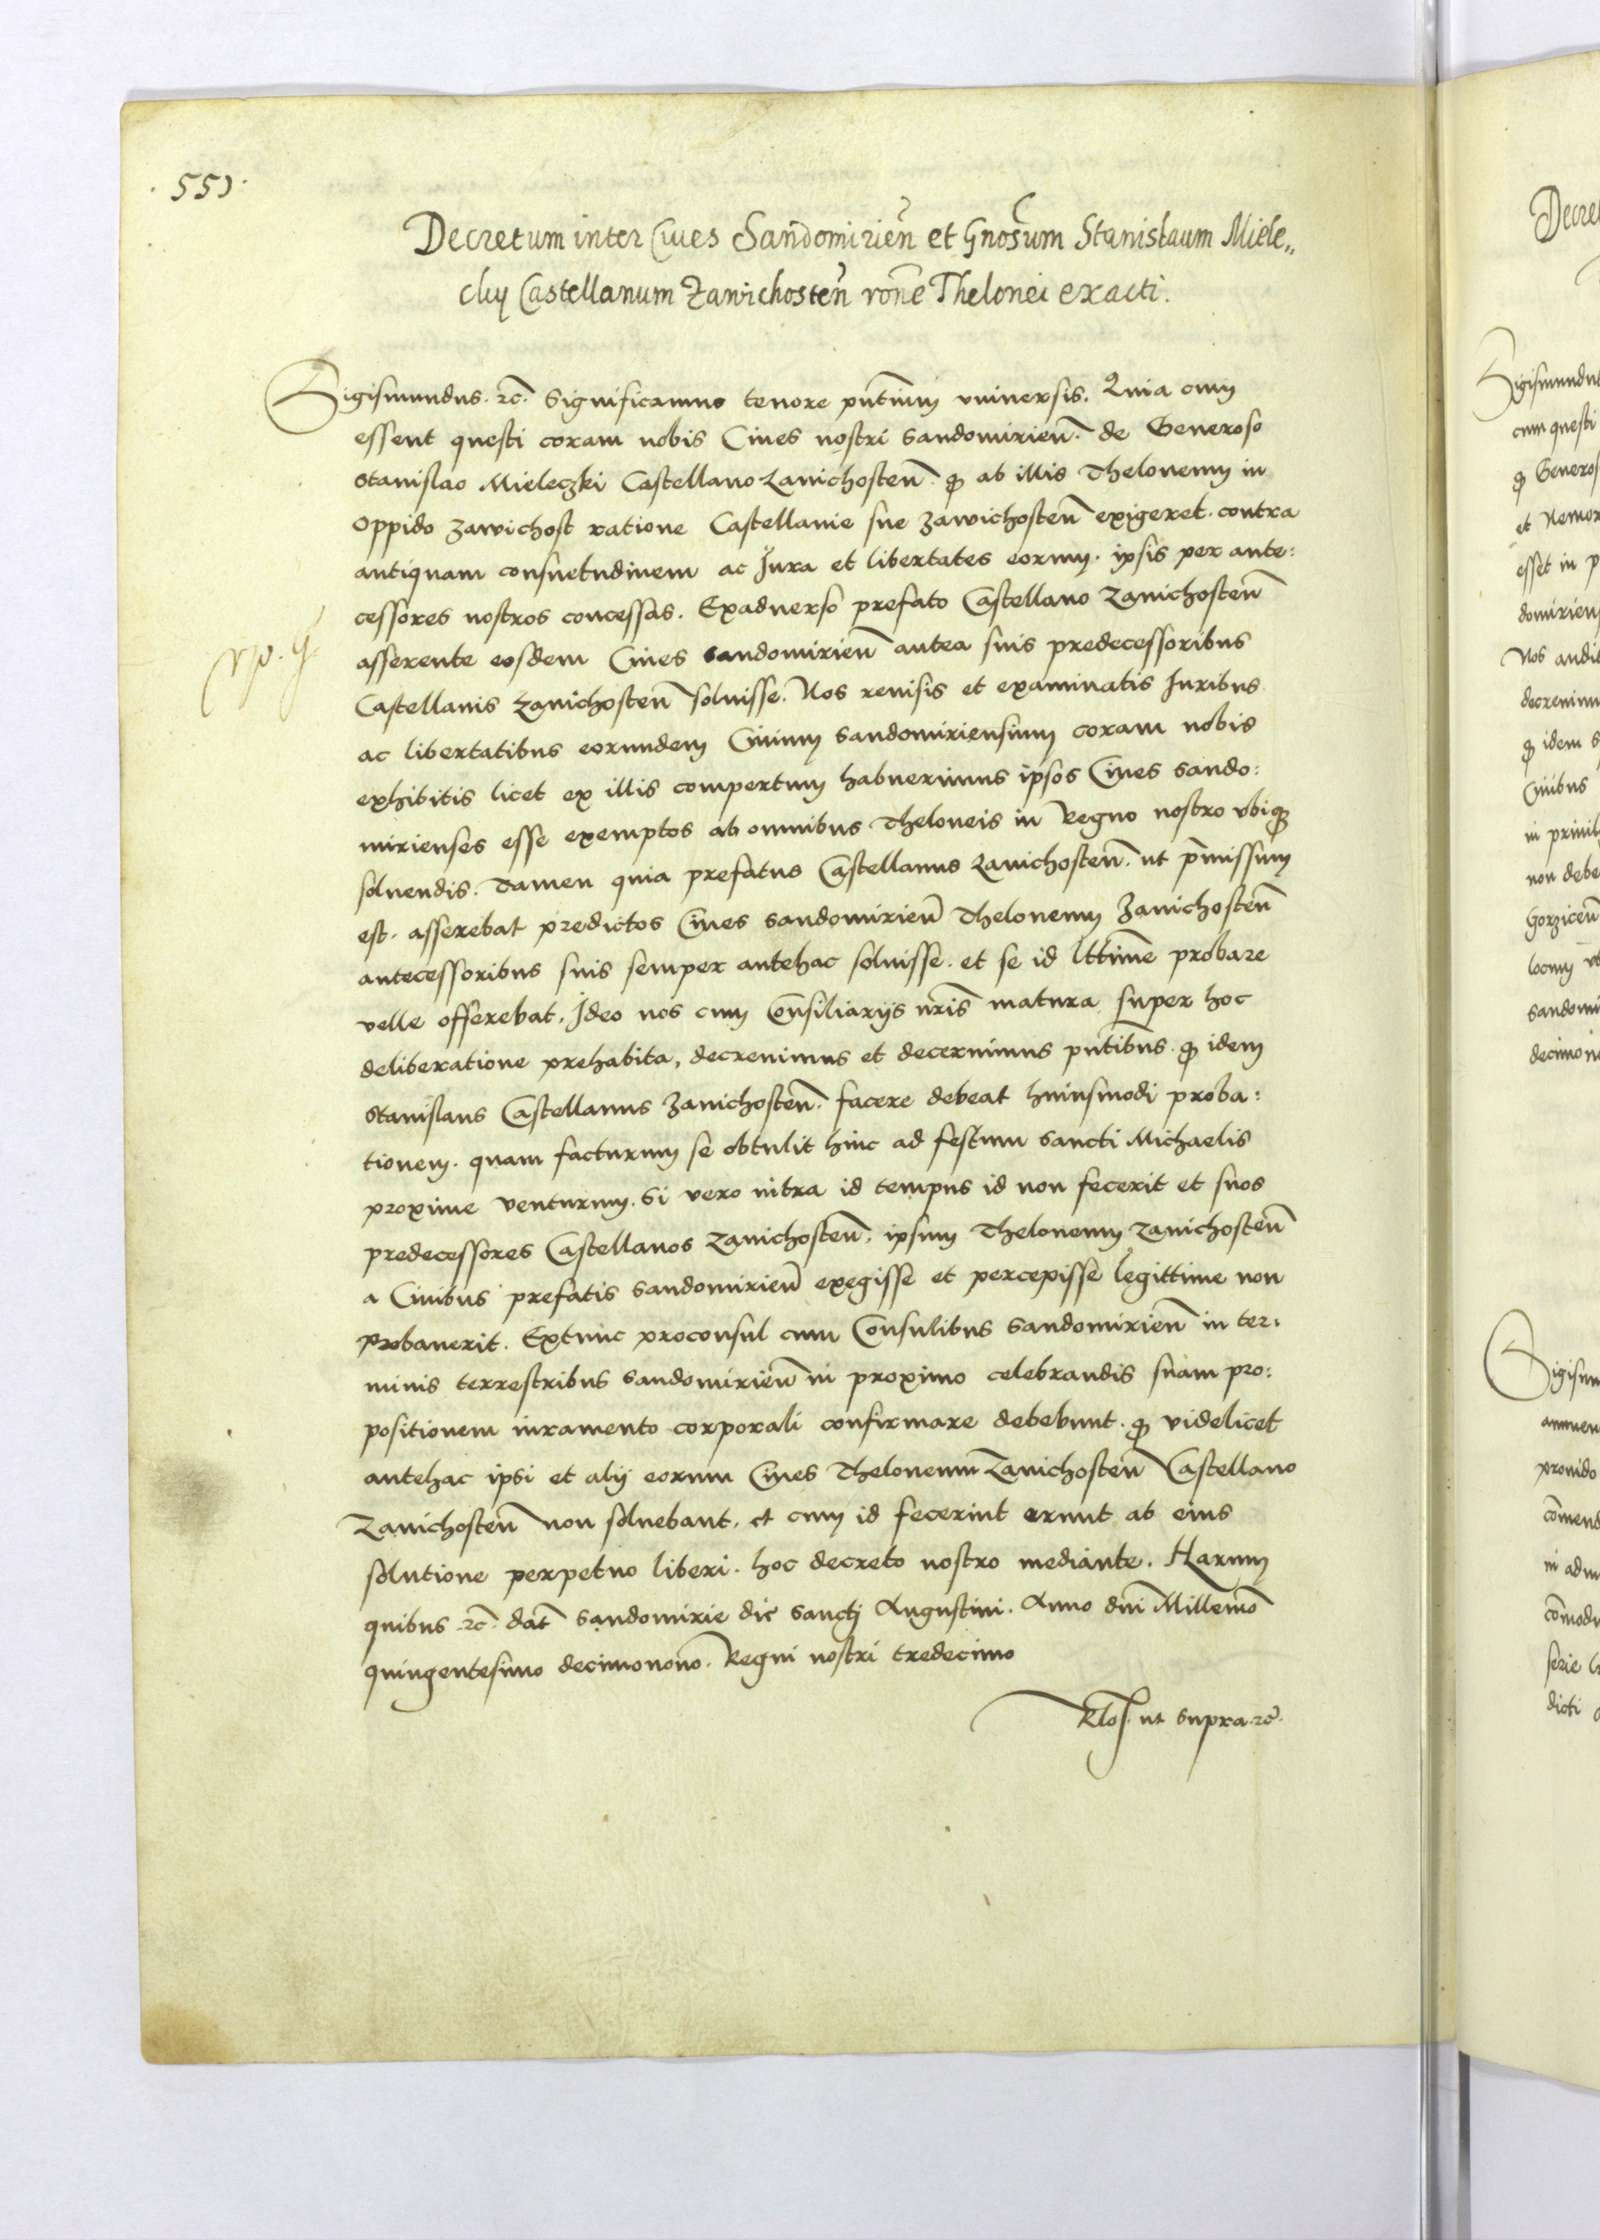 551.
Decretum inter Cives Sandomirieñ et Gnosum Stanislaum Miele„
Castellanum Zawichosteñ rõne Thelonei exacti.
Sigismundus. rc̃. Significamus tenore pñtium vniuersis. Quia cum
essent questi coram nobis Ciues nostri Sandomirieñ. de Generoso
Stanislao Mieleczki Castellano Zauichosteñ. ꝙ ab illis Theloneum in
Oppido Zawichost ratione Castellanie sue Zawichosteñ exigeret. contra
antiquam consuetudinem ac Jura et libertates eorum. ipsis per ante:
cessores nostros concessas. Exaduerso prefato Castellano Zauichosteñ
asserente eosdem Ciues Sandomirieñ antea suis predecessoribus
Castellanis Zauichosteñ soluisse. Nos reuisis et examinatis Iuribus
ac libertatibus eorundem Ciuium Sandomiriensium coram nobis
exhibitis licet ex illis compertum habuerimus ipsos Ciues Sando:
mirienses esse exemptos ab omnibus Theloneis in Regno nostro vbiqꝫ
soluendis. Tamen quia prefatus Castellanus Zauichosteñ. ut p̃missum
est. asserebat predictos Ciues Sandomirieñ Theloneum Zauichosteñ
antecessoribus suis semper antehac soluisse. et se id lttime probare
velle offerebat. Ideo nos cum Consiliarijs nr̃is matura super hoc
deliberatione prehabita, decreuimus et decernimus pñtibus. ꝙ idem
Stanislaus Castellanus Zauichosteñ. facere debeat huiusmodi proba:
tionem. quam facturum se obtulit hinc ad festum Sancti Michaelis
proxime venturum. Si vero intra id tempus id non fecerit et suos
predecessores Castellanos Zauichosteñ. ipsum Theloneum Zauichosteñ
a Ciuibus prefatis Sandomirieñ exegisse et percepisse legittime non
probauerit. Extunc proconsul cum Consulibus Sandomirieñ in ter:
minis terrestribus Sandomirieñ in proximo celebrandis suam pro:
positionem iuramento corporali confirmare debebunt. ꝙ videlicet
antehac ipsi et alij eorum Ciues Theloneum Zauichosteñ Castellano
Zauichosteñ non soluebant. et cum id fecerint erunt ab eius
solutione perpetuo liberi. hoc decreto nostro mediante. Harum
quibus rc̃. dat̃ Sandomirie die Sancti Augustini. Anno dñi Millemõ
quingentesimo decimonono. Regni nostri tredecimo
Rlõ. ut supra. rc̃.
Decre
Sigismundu
cum questi
ꝙ Generos
et Nemor
esset in p
domiriens
Nos audit
decreuimu
ꝙ idem S
Ciuibus
in priuil
non debe
Gorziceñ
locum vt
Sandomi
decimono
Sigism
annuen
prouido
cõmend
in adm
cõmodu
serie
dicti